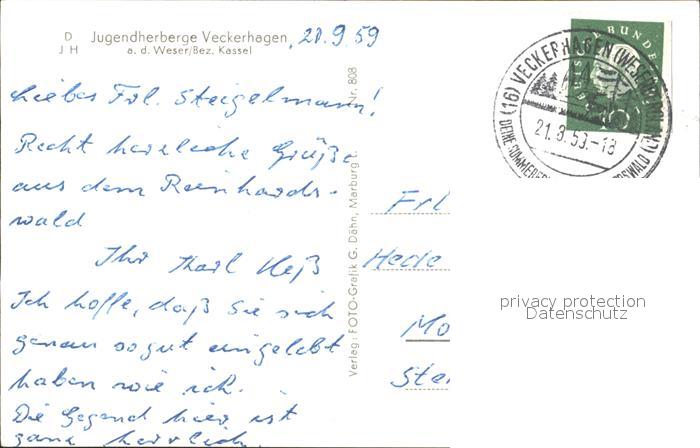 D
J H
Jugendherberge Veckerhagen
a. d. Weser/Bez. Kassel
21.9.59
Nr. 808
Liebes Frl. Steigelmann!
Recht herzliche Grüße
aus dem Reinhards-
wald
Ihr Karl Heß
Ich hoffe, daß Sie sich
genau so gut eingelebt
haben wie ich.
Die Gegend hier ist
ganz herrlich.
Verlag: FOTO-Grafik G. Dähn, Marburg L.
Frl
Hede
Mo
Ste
BUNDE
(16) VECKERHAGEN (WESER)
21.8.59.-18
privacy protection
Datenschutz